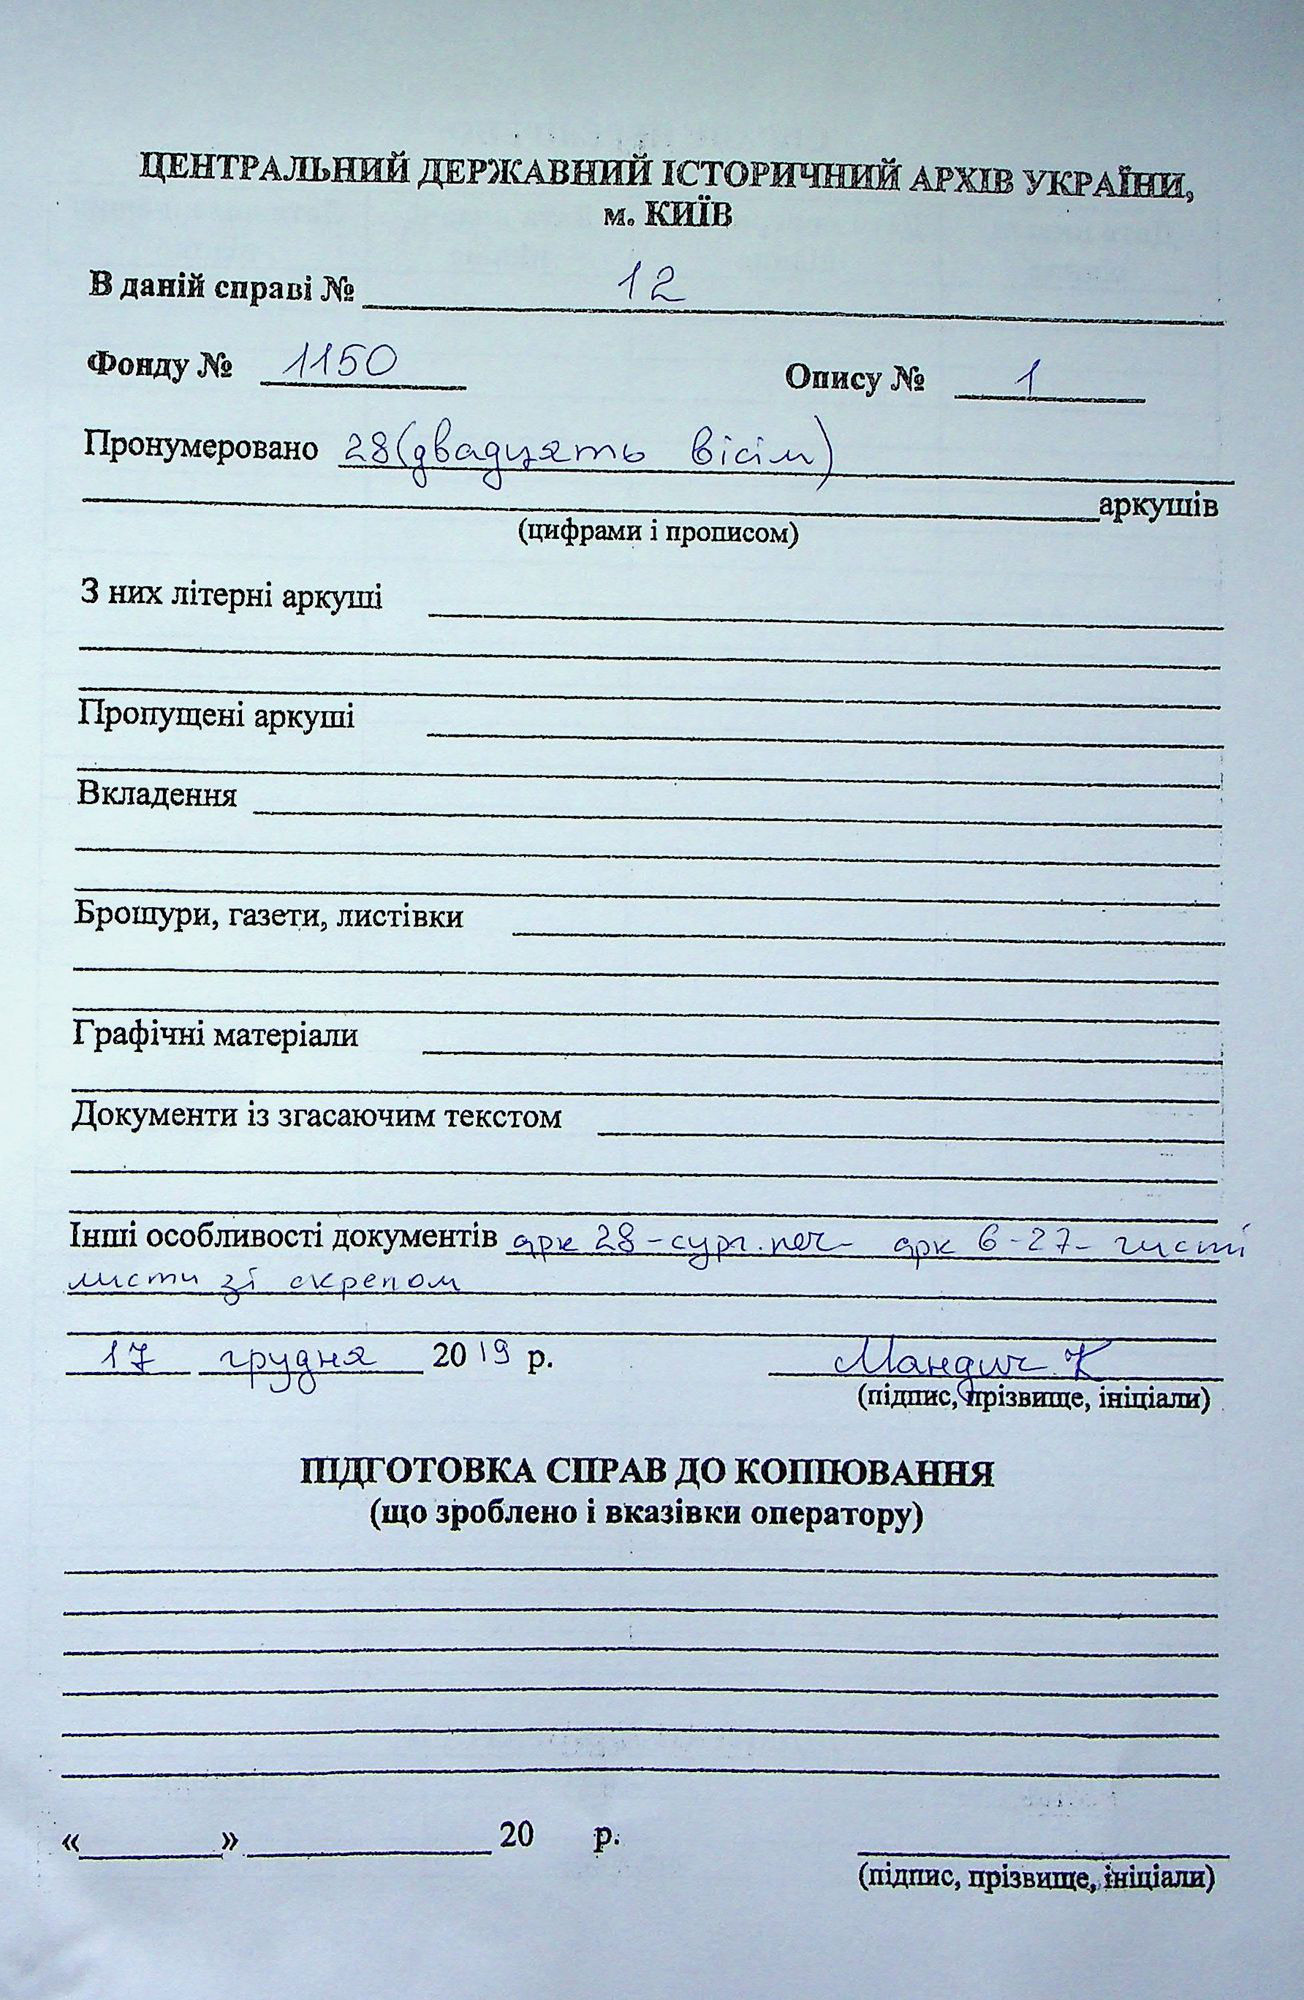 ЦЕНТРАЛЬНИЙ ДЕРЖАВНИЙ ІСТОРИЧНИЙ АРХІВ УКРАЇНИ,
м. КИЇВ
В даній справі № 12
Фонду № 1150 Опису № 1
Пронумеровано 28 (двадцять вісім)
аркушів
(цифрами і прописом)
З них літерні аркуші
Пропущені аркуші
Вкладення
Брошури, газети, листівки
Графічні матеріали
Документи із згасаючим текстом
Інші особливості документів арк 28 - сург. печ - арк 6-27 - чисті
листи зі скрепом
17 грудня 2019 р. Мандич К
(підпис, прізвище, ініціали)
ПІДГОТОВКА СПРАВ ДО КОПІЮВАННЯ
(що зроблено і вказівки оператору)
« » 20 р.
(підпис, прізвище, ініціали)